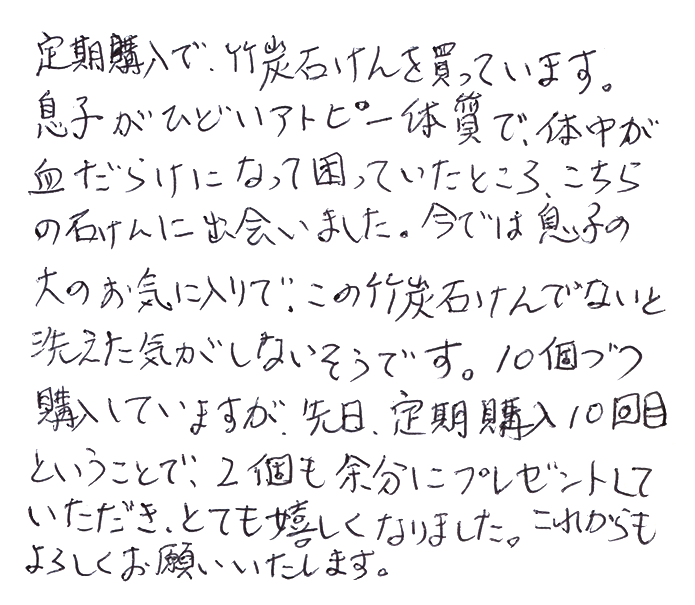 定期購入で、竹炭石けんを買っています。
息子がひどいアトピー体質で、体中が
血だらけになって困っていたところ、こちら
の石けんに出会いました。今では息子の
大のお気に入りで、この竹炭石けんでないと
洗えた気がしないそうです。10個づつ
購入していますが、先日、定期購入10回目
ということで、2個も余分にプレゼントして
いただき、とても嬉しくなりました。これからも
よろしくお願いいたします。